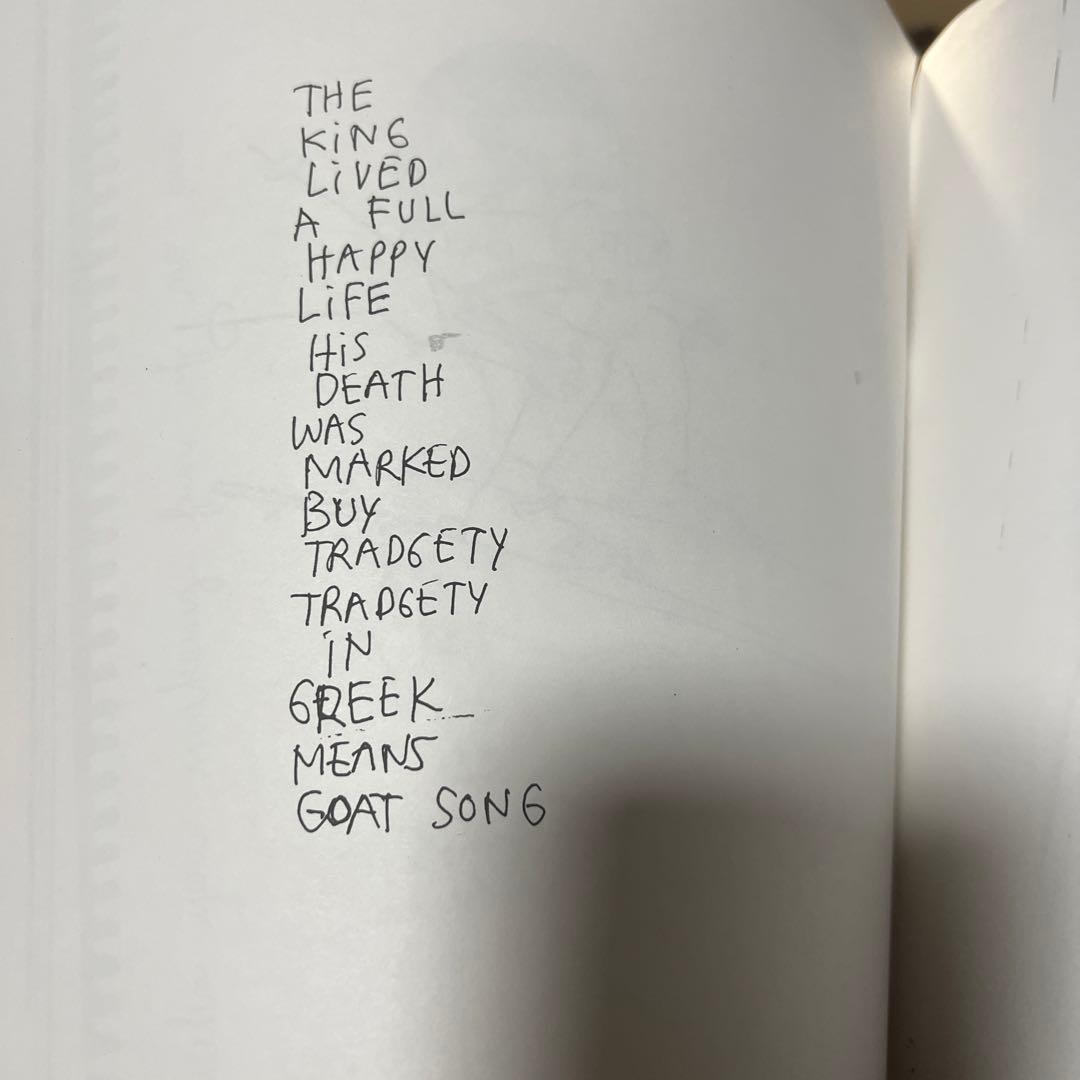 THE
KiNG
LiVED
A FULL
HAPPY
LiFE
HiS
DEATH
WAS
MARKED
BUY
TRADGETY
TRADGETY
iN
GREEK
MEANS
GOAT SONG